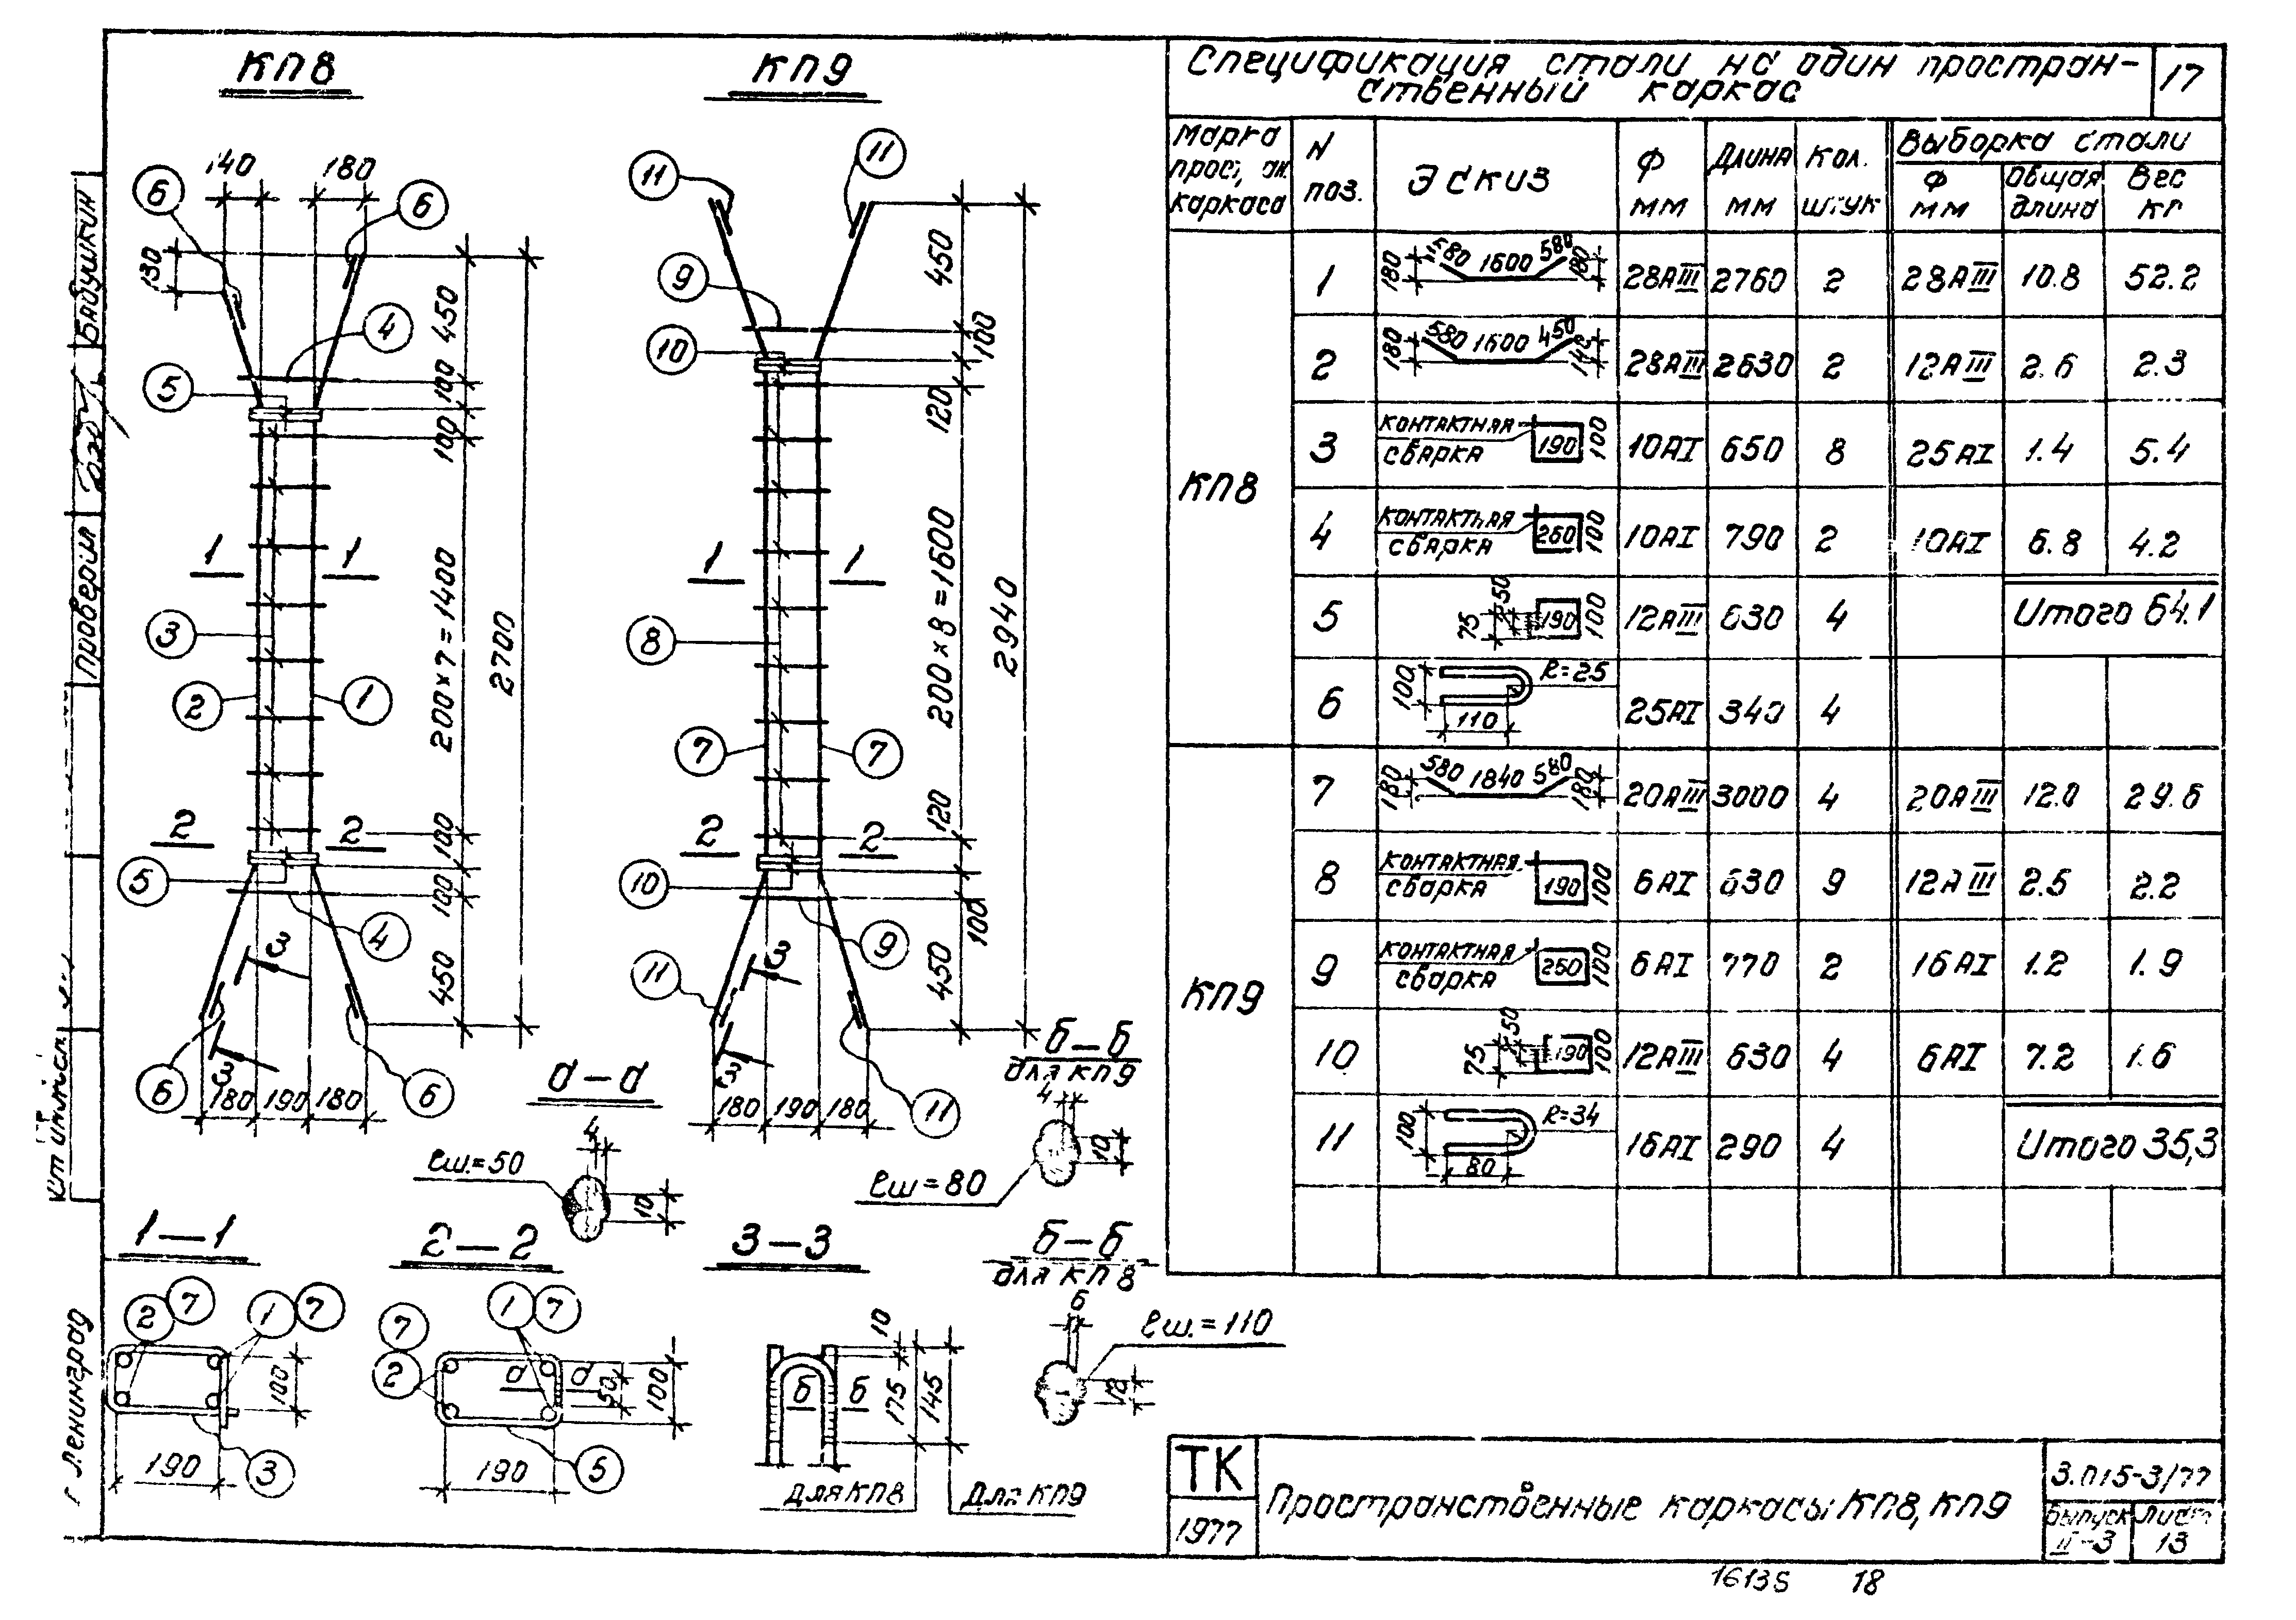 КП8
КП9
Спецификация стали на один простран-
ственный каркас
17
Марка
прост, ан.
каркаса
N
поз.
Эскиз
Ф
мм
Длина
мм
Кол.
штук
Выборка стали
Ф
мм
Общая
длина
Вес
кг
КП8
1 180 580 1600 580 180 28АIII 2760 2 28АIII 10.8 52.2
2 180 580 1600 450 140 28АIII 2630 2 12АIII 2.6 2.3
3 контактная сварка 190 100 10АI 650 8 25АI 1.4 5.4
4 контактная сварка 260 100 10АI 790 2 10АI 6.8 4.2
5 75 50 190 100 12АIII 630 4 Итого 64.1
6 100 110 R=25 25АI 340 4
КП9
7 180 580 1840 580 180 20АIII 3000 4 20АIII 12.0 29.6
8 контактная сварка 190 100 6АI 630 9 12АIII 2.5 2.2
9 контактная сварка 260 100 6АI 770 2 16АI 1.2 1.9
10 75 50 190 100 12АIII 630 4 6АI 7.2 1.6
11 100 80 R=34 16АI 290 4 Итого 35,3
140 180
6 6
130
4
5
450
100
100
1 1
3
200×7=1400
2700
2 1
2 2
100
5
100
4
450
3
3
6 6
180 190 180
11 11
9
10
450
100
120
1 1
8
200×8=1600
2940
7 7
2 2
120
10
9
100
11
450
3
3
11
180 190 180
а-а
4
ℓш.=50
10
б-б
для КП9
4
10
ℓш=80
1-1
2 7 1 7
100
190
3
2-2
7 2 1 7
а а
50
100
190
5
3-3
10
б б
175
145
для КП8
для КП9
б-б
для КП8
6
ℓш.=110
Бабушкин
Проверил
г. Ленинград
ТК
1977
Пространственные каркасы КП8, КП9
3.015-3/77
Выпуск
II-3
Лист
13
18